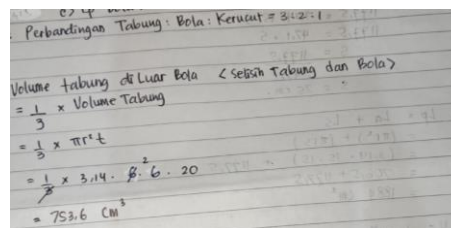 Perbandingan Tabung : Bola : Kerucut = 3 : 2 : 1
Volume tabung di Luar Bola < selisih Tabung dan Bola >
= 1/3 × Volume Tabung
= 1/3 × πr²t
= 1/3 × 3,14 . 6 . 6 2 . 20
= 753,6 cm³